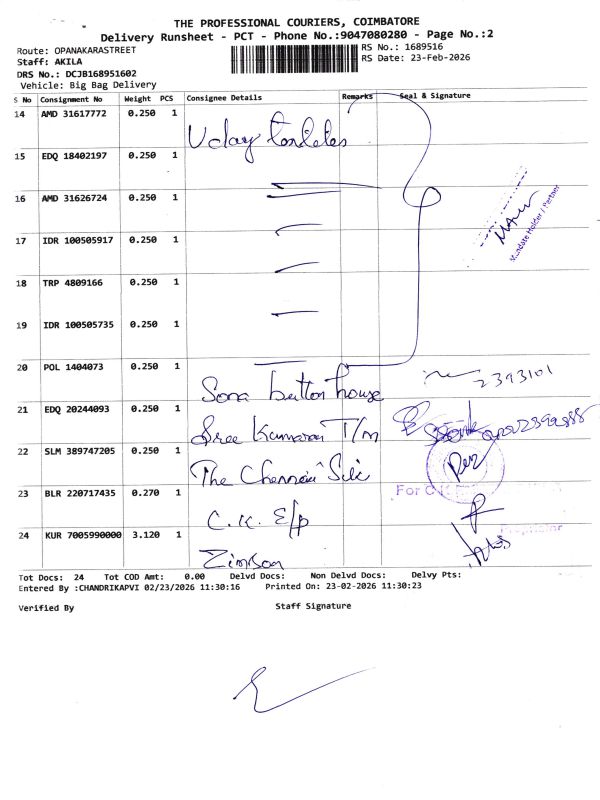 THE PROFESSIONAL COURIERS, COIMBATORE
Delivery Runsheet - PCT - Phone No.:9047080280 - Page No.:2
Route: OPANAKARASTREET
RS No.: 1689516
Staff: AKILA
RS Date: 23-Feb-2026
DRS No.: DCJB168951602
Vehicle: Big Bag Delivery
S No Consignment No Weight PCS Consignee Details Remarks Seal & Signature
14 AMD 31617772 0.250 1 Uday
15 EDQ 18402197 0.250 1
16 AMD 31626724 0.250 1
17 IDR 100505917 0.250 1
Mandate Holder / Partner
18 TRP 4809166 0.250 1
19 IDR 100505735 0.250 1
20 POL 1404073 0.250 1 Sona button house 2393101
21 EDQ 20244093 0.250 1 Sree Kumaran T/m
22 SLM 389747205 0.250 1 The Chennai Silk
23 BLR 220717435 0.270 1 C.K. E/p
For C.K.
24 KUR 7005990000 3.120 1
Proprietor
Tot Docs: 24 Tot COD Amt: 0.00 Delvd Docs: Non Delvd Docs: Delvy Pts:
Entered By :CHANDRIKAPVI 02/23/2026 11:30:16 Printed On: 23-02-2026 11:30:23
Verified By Staff Signature